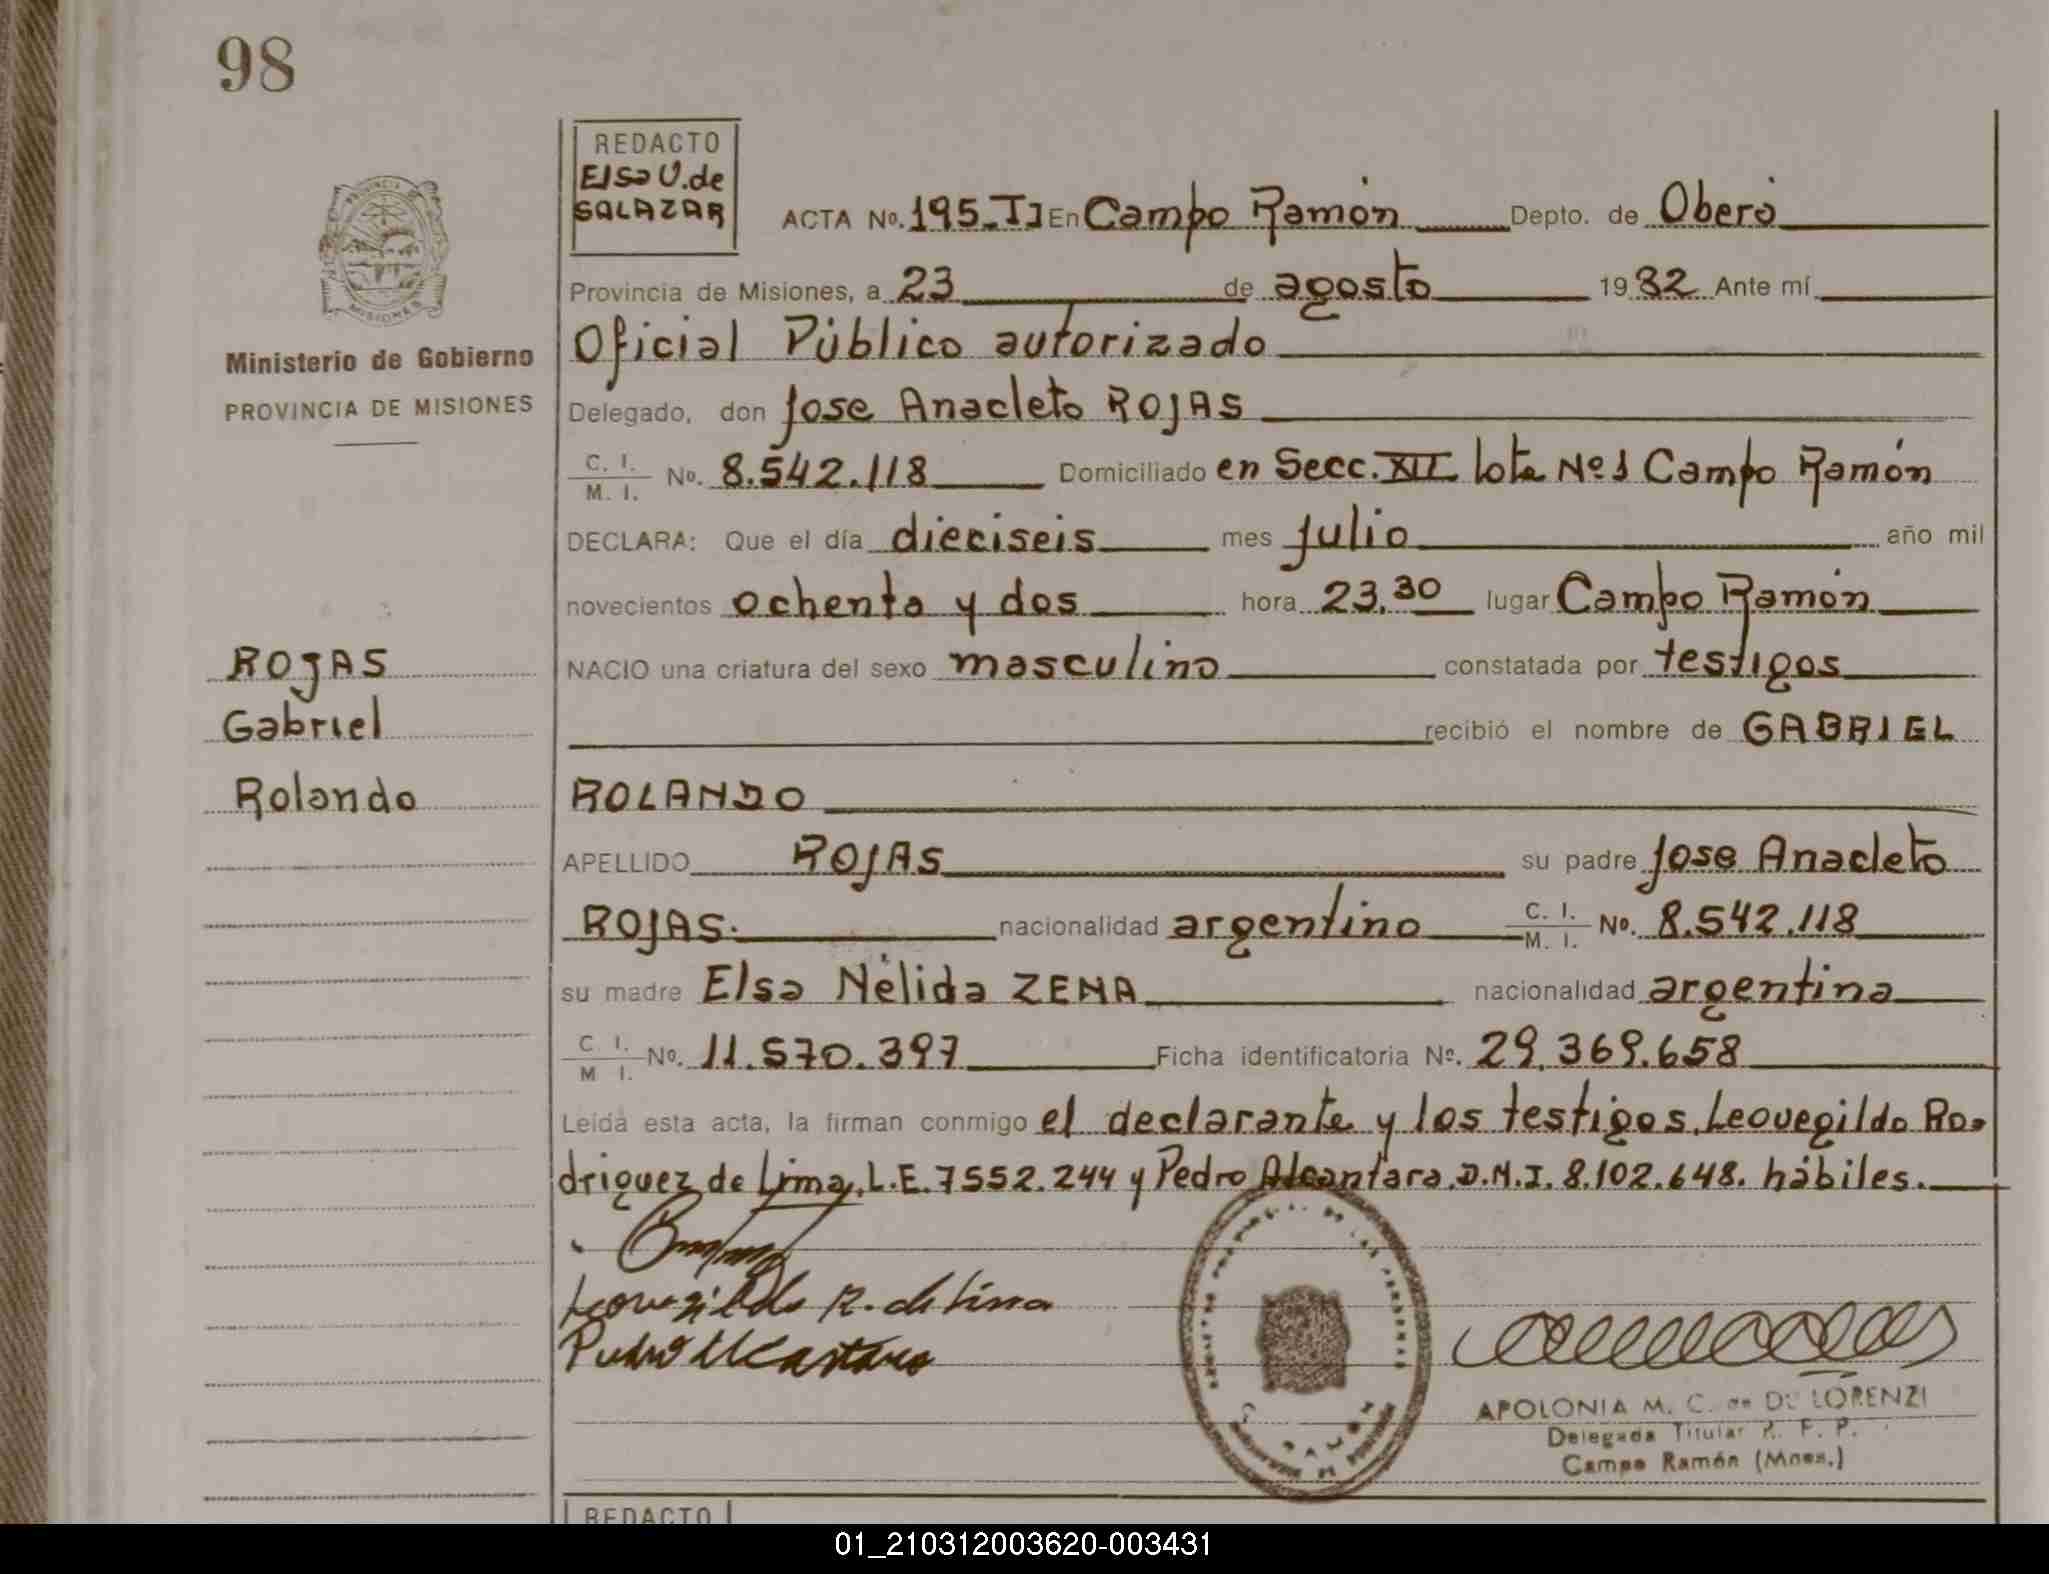 98
REDACTO
Elsa U. de
SALAZAR
ACTA No. 195_TI En Campo Ramón Depto. de Oberá
Provincia de Misiones, a 23 de agosto 1982 Ante mí
Oficial Público autorizado
PROVINCIA DE
MISIONES
Ministerio de Gobierno
PROVINCIA DE MISIONES
Delegado, don Jose Anacleto ROJAS
C. I.
M. I. No. 8.542.118 Domiciliado en Secc. XII lote Nº 1 Campo Ramón
DECLARA: Que el día dieciseis mes julio año mil
novecientos ochenta y dos hora 23,30 lugar Campo Ramón
NACIO una criatura del sexo masculino constatada por testigos
recibió el nombre de GABRIEL
ROLANDO
ROJAS
Gabriel
Rolando
APELLIDO ROJAS su padre Jose Anacleto
ROJAS. nacionalidad argentino C. I. M. I. No. 8.542.118
su madre Elsa Nélida ZENA nacionalidad argentina
C. I. M. I. No. 11.570.397 Ficha identificatoria Nº. 29.369.658
Leída esta acta, la firman conmigo el declarante y los testigos, Leovegildo Ro-
driguez de Lima, L.E. 7552.244 y Pedro Alcantara, D.N.I. 8.102.648. hábiles.
Leovegildo R. de Lima
Pedro Alcantara
APOLONIA M. C. de DE LORENZI
Delegada Titular R. P. P.
Campo Ramón (Mnes.)
REDACTO
01_210312003620-003431